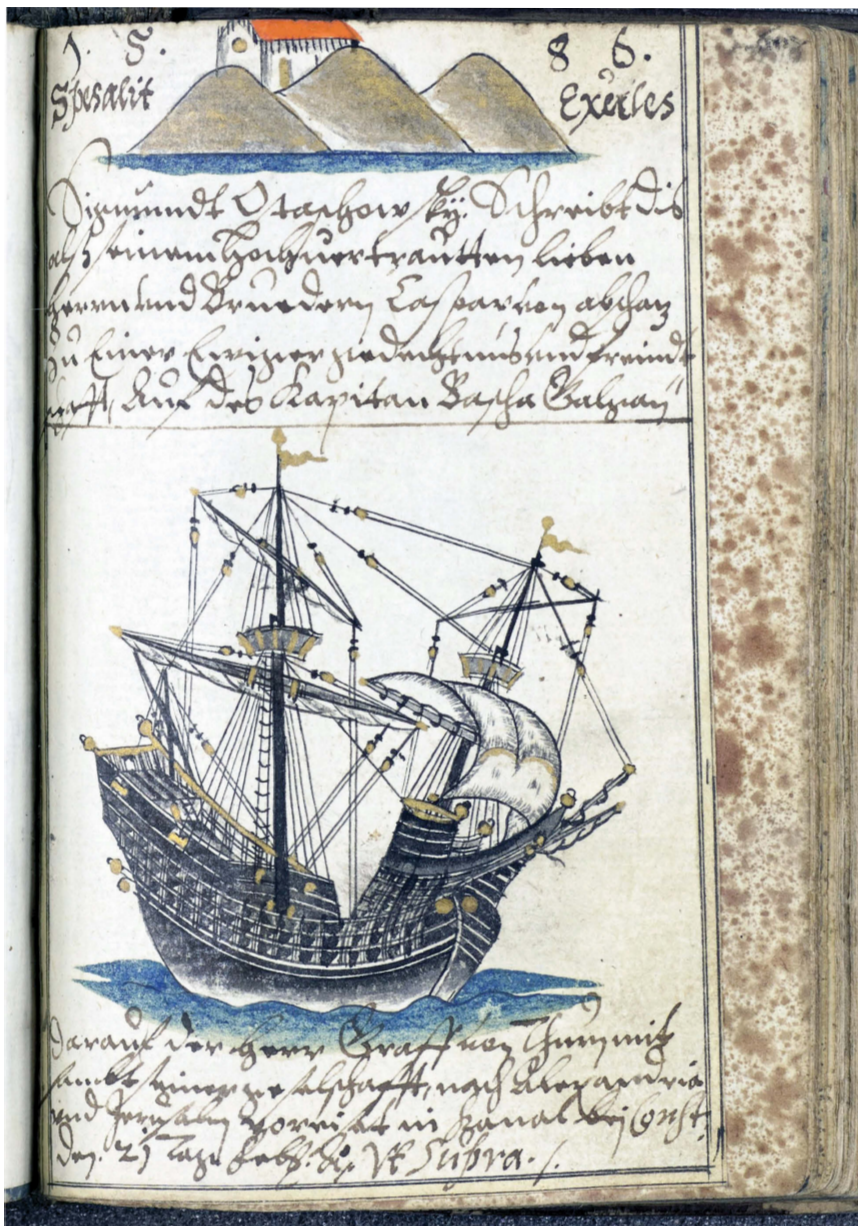 1. 5. 8 6.
Spes alit Exules
Sigmundt Otaschowsky. Schreibt dis
als seinem hochuertrautten lieben
herrn und Bruedern Casspar von abschaz
zu Einer Ewigen gedechtnus und freindt
schafft, Auf des Kapitan Bascha Galean
darauf der herr Graff von Thurn mit
sambt seiner geselschafft, nach Alexandria
und Jerusalem verreist in Kanal bej Const:
den. 21 Tag febr: Ut Supra. /.